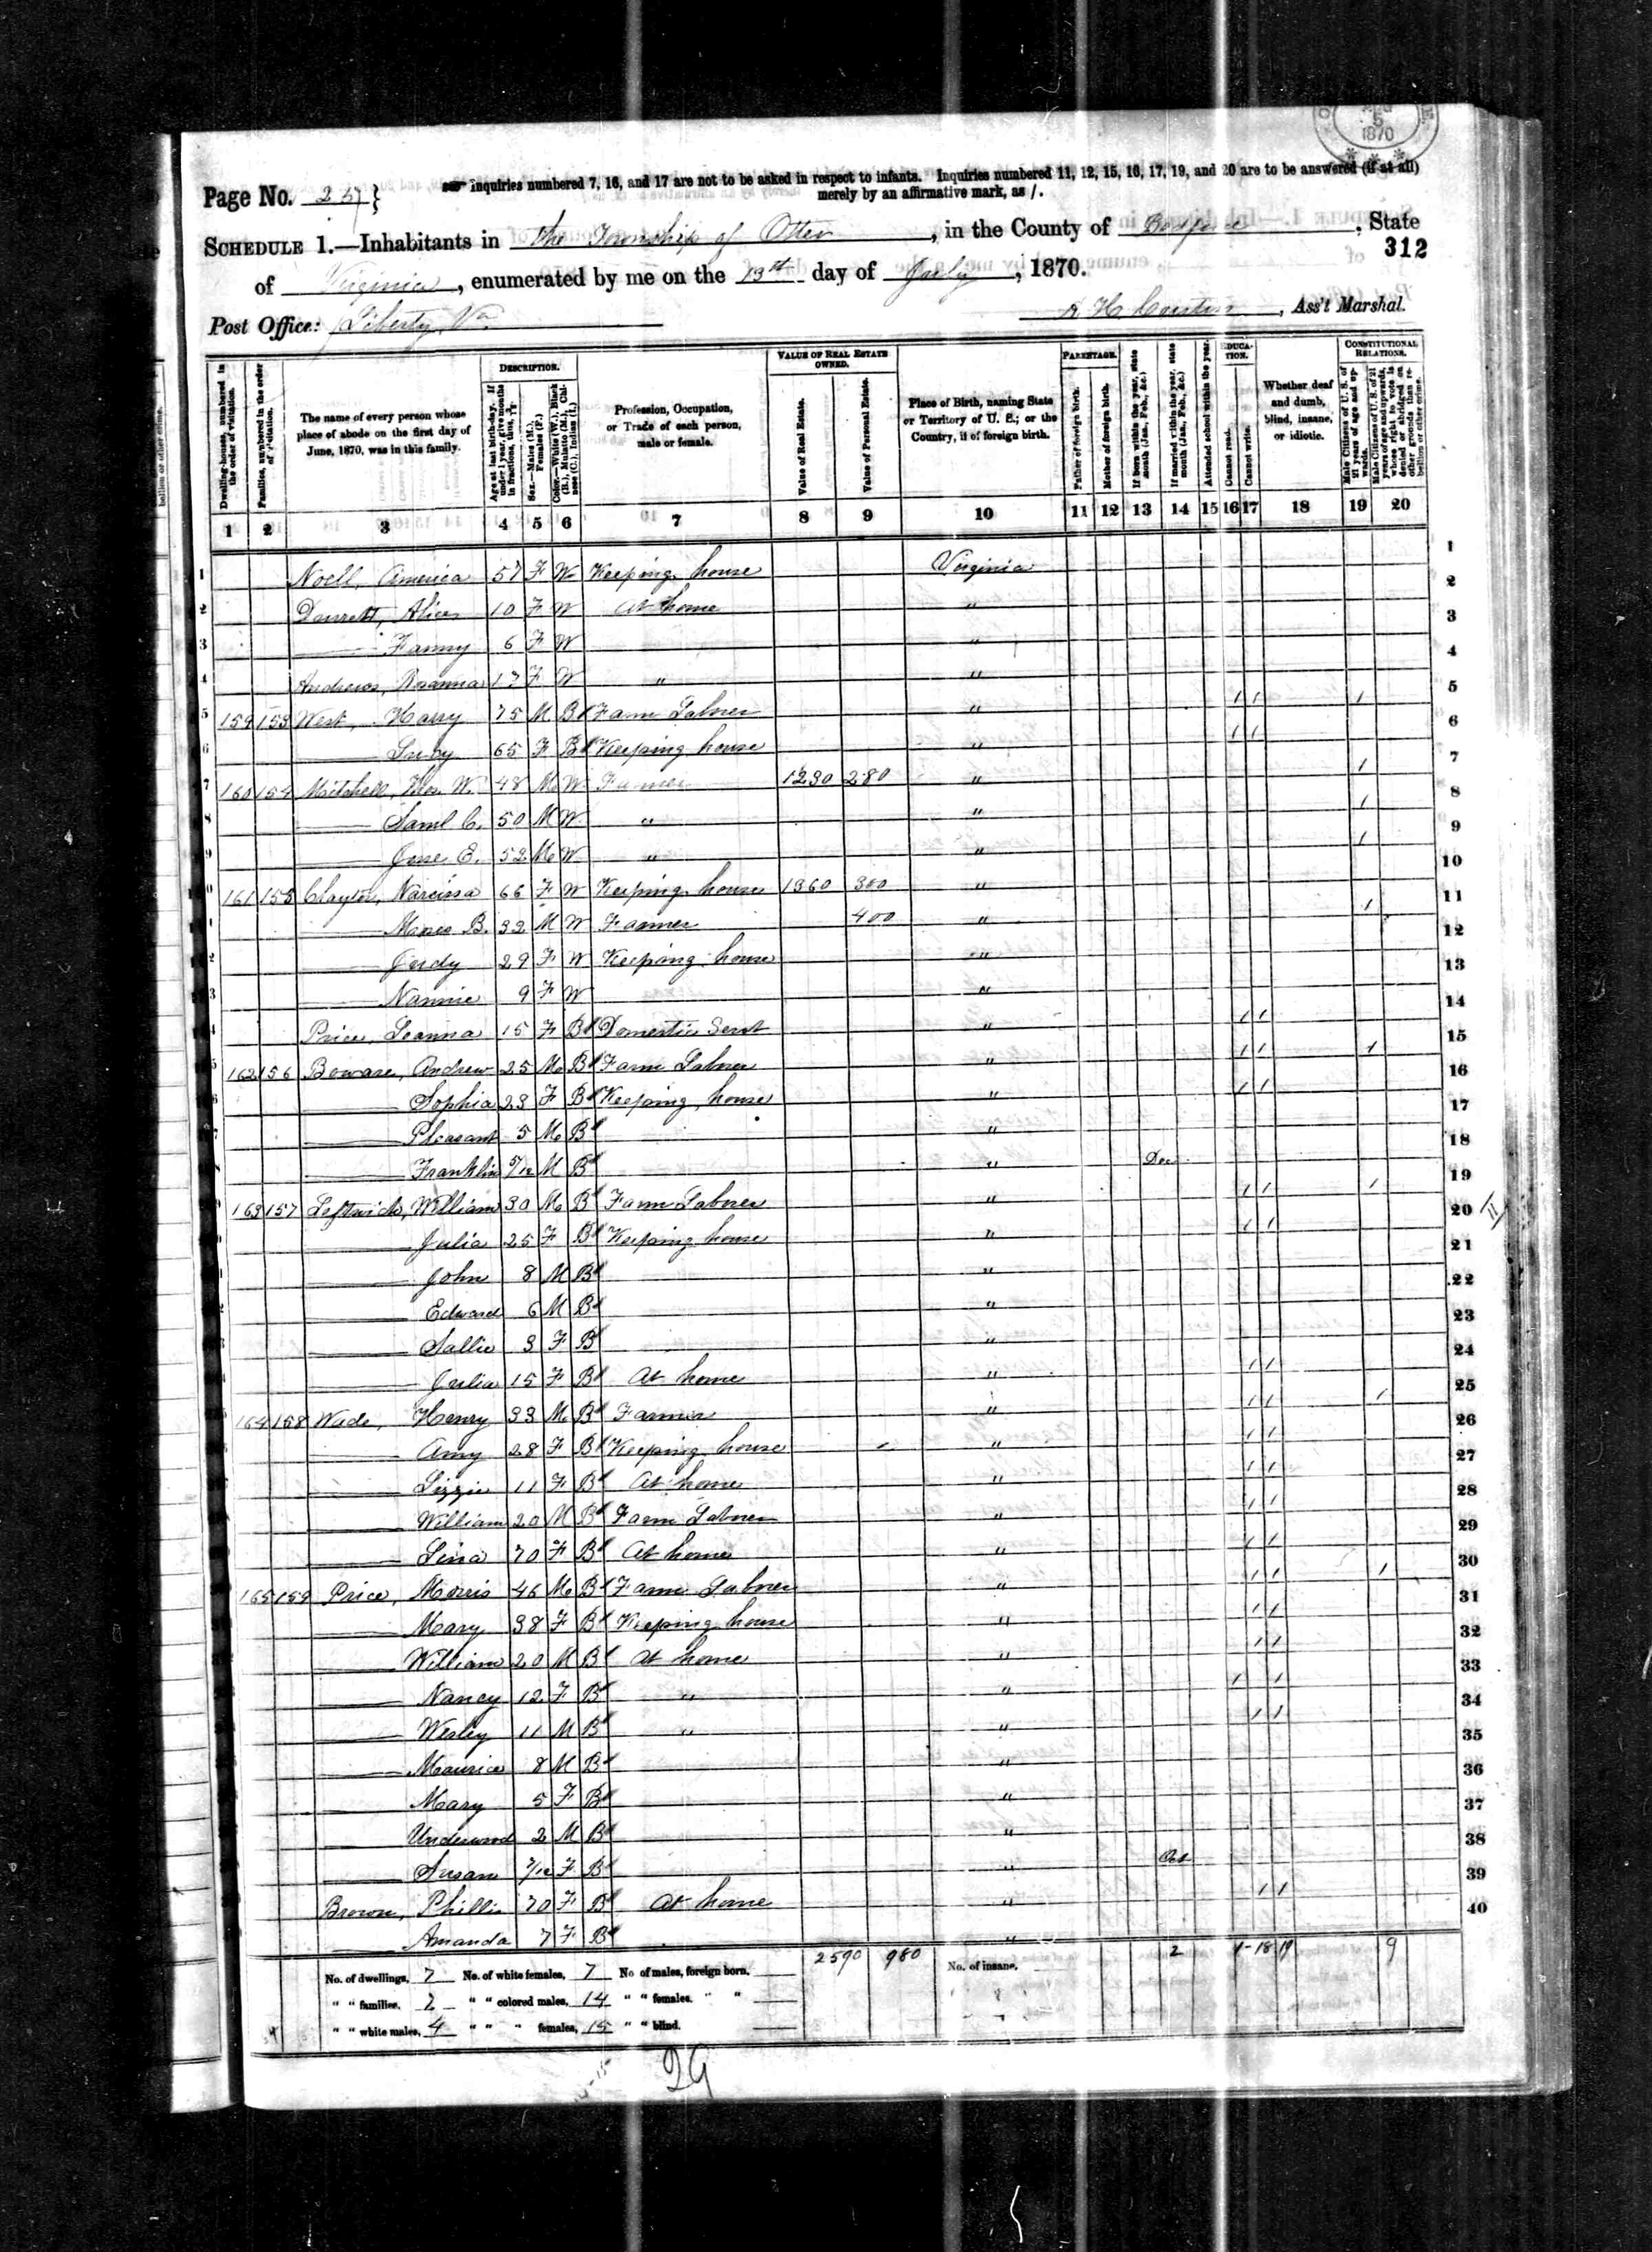 AUG 5 1870
Page No. 2
Inquiries numbered 7, 16, and 17 are not to be asked in respect to infants. Inquiries numbered 11, 12, 15, 16, 17, 19, and 20 are to be answered (if at all)
merely by an affirmative mark, as /.
SCHEDULE 1.—Inhabitants in the Township of Otter, in the County of Bedford, State
312
of Virginia, enumerated by me on the 13th day of July, 1870.
Post Office: Liberty, Va. , Ass't Marshal.
Dwelling-houses, numbered in the order of visitation.
Families, numbered in the order of visitation.
The name of every person whose place of abode on the first day of June, 1870, was in this family.
DESCRIPTION.
Age at last birth-day. If under 1 year, give months in fractions, thus, 3/12
Sex.—Males (M.), Females (F.)
Color.—White (W.), Black (B.), Mulatto (M.), Chinese (C.), Indian (I.)
Profession, Occupation, or Trade of each person, male or female.
VALUE OF REAL ESTATE OWNED.
Value of Real Estate.
Value of Personal Estate.
Place of Birth, naming State or Territory of U. S.; or the Country, if of foreign birth.
PARENTAGE.
Father of foreign birth.
Mother of foreign birth.
If born within the year, state month (Jan., Feb., &c.)
If married within the year, state month (Jan., Feb., &c.)
Attended school within the year.
EDUCATION.
Cannot read.
Cannot write.
Whether deaf and dumb, blind, insane, or idiotic.
CONSTITUTIONAL RELATIONS.
Male Citizens of U. S. of 21 years of age and upwards.
Male Citizens of U. S. of 21 years of age and upwards, whose right to vote is denied or abridged on other grounds than rebellion or other crime.
1 2 3 4 5 6 7 8 9 10 11 12 13 14 15 16 17 18 19 20
1 Noell, America 57 F W Keeping house Virginia 1
2 Alice 10 F W At home " 2
3 Fanny 6 F W " 3
4 Andrews, Rosanna 17 F W " " 4
5 159 153 West, Harry 75 M B Farm Laborer " / / / 5
6 Lucy 65 F B Keeping house " / / 6
7 160 154 Mitchell, W. 48 M W Farmer 1230 280 " / 7
8 Saml C. 50 M W " " / 8
9 Jesse E. 52 M W " " / 9
161 155 Clayton, Narcissa 66 F W Keeping house 1360 300 " 10
B. 32 M W Farmer 400 " / 11
Judy 29 F W Keeping house " 12
Nannie 9 F W " 13
Price, Leanna 15 F B Domestic Servt " / / 14
162 156 Andrew 25 M B Farm Laborer " / / / 15
Sophia 23 F B Keeping house " / / 16
Pleasant 5 M B " 17
Franklin 5/12 M B " Dec 18
163 157 Leftwich, William 30 M B Farm Laborer " / / / 19
Julia 25 F B Keeping house " / / 20
John 8 M B " 21
Edward 6 M B " 22
Sallie 3 F B " 23
Julia 15 F B At home " / / 24
164 158 Wade, Henry 33 M B Farmer " / / / 25
Amy 28 F B Keeping house " / / 26
Lizzie 11 F B At home " / / 27
William 20 M B Farm Laborer " / / 28
Lina 70 F B At home " / / 29
165 159 Price, Morris 46 M B Farm Laborer " / / / 30
Mary 38 F B Keeping house " / / 31
William 20 M B At home " / / 32
Nancy 12 F B " " / / 33
Wesley 11 M B " " / / 34
Maurice 8 M B " 35
Mary 5 F B " 36
Underwood 2 M B " 37
Susan 7/12 F B " Oct 38
Brown, Phillis 70 F B At home " / / 39
Amanda 7 F B " 40
No. of dwellings, 7 No. of white females, 7 No of males, foreign born, 2590 980 No. of insane, 2 1-18 19 9
" " families, 7 " " colored males, 14 " " females, " "
" " white males, 4 " " " females, 15 " " blind,
29